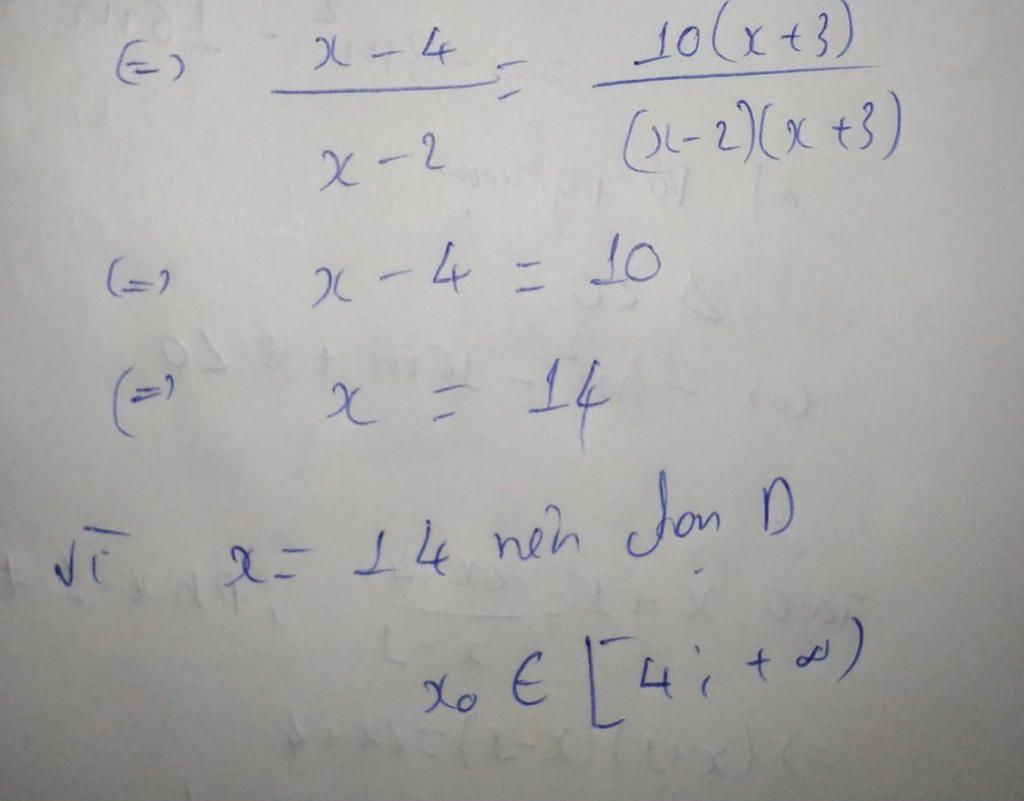 (=) x - 4 / x - 2 = 10(x+3) / (x-2)(x+3)
(=) x - 4 = 10
(=) x = 14
Vì x = 14 nên chọn D
x₀ ∈ [4; +∞)